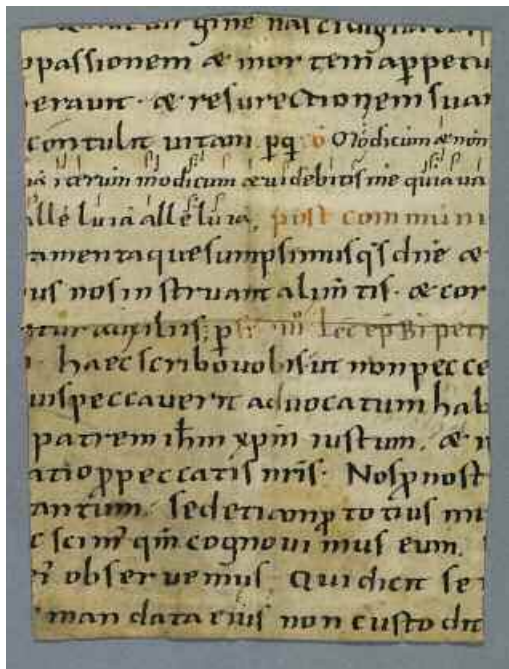 passionem & mortem appetit
erauit · & resurectionem suam
contulit uitam. p q o Modicum & non
iterum modicum & uidebitis me quia ua
alleluia alleluia, post communi
tamentaque sumpsimus qs dne &
us nos instruant alimtis · & cor
auxiliis; p lec ep Bi petri
haec scribo uobis ut non pecce
uis peccauerit aduocatum hab
patrem ihm xpm iustum. &
atio p peccatis nris · Nos p nost
tantum. sed etiam p totius mu
scimus qm cognouimus eum.
obseruemus. Qui dicit se
mandata eius non custodit